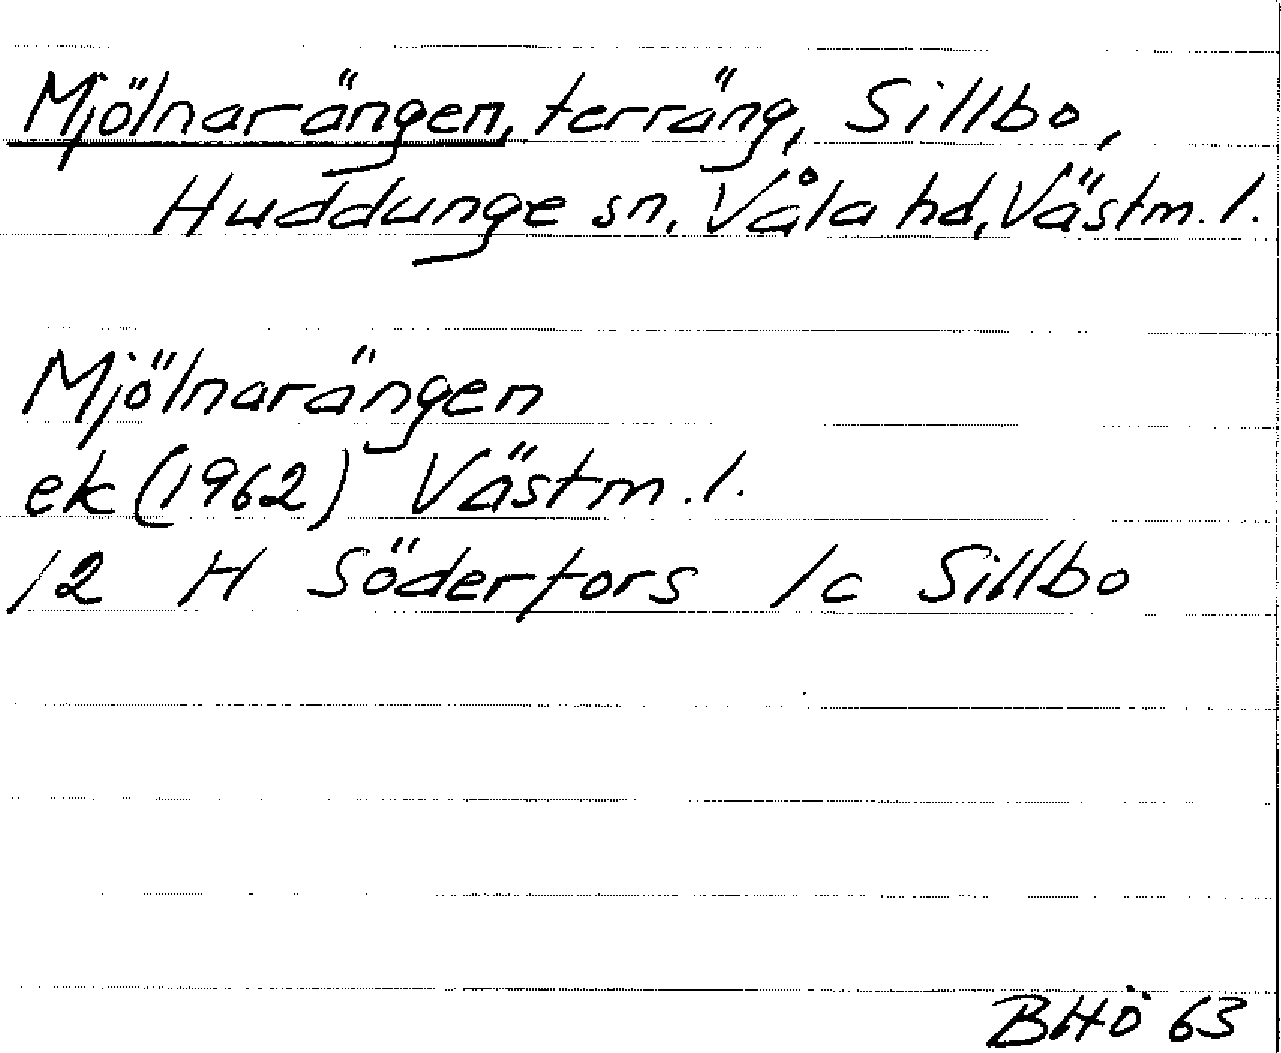 Mjölnarängen, terräng, Sillbo,
Huddunge sn, Våla hd, Västm. l.
Mjölnarängen
ek (1962) Västm. l.
12 H Söderfors 1c Sillbo
BHÖ 63